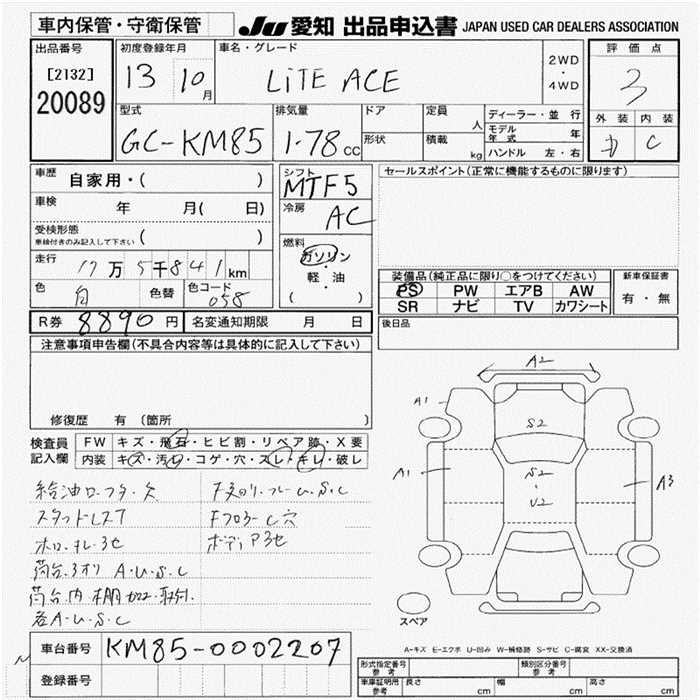 車内保管・守衛保管
JU 愛知 出品申込書 JAPAN USED CAR DEALERS ASSOCIATION
出品番号
[2132]
20089
初度登録年月
13 10月
車名・グレード
LiTE ACE
2WD
・
4WD
評価点
3
外装 内装
C
型式
GC-KM85
排気量
1.78cc
ドア
形状
定員 人
積載 kg
ディーラー・並行
モデル年式 年
ハンドル 左・右
車歴 自家用・( )
車検 年 月( 日)
受検形態
車検付きのみ記入して下さい ( )
走行 17万5千841km
色 白 色替 色コード 058
シフト
MTF5
冷房
AC
燃料
ガソリン
・
軽・油
( )
セールスポイント(正常に機能するものに限ります)
装備品(純正品に限り○をつけてください)
PS PW エアB AW
SR ナビ TV カワシート
新車保証書
有・無
R券 8890円 名変通知期限 月 日
後日品
注意事項申告欄(不具合内容等は具体的に記入して下さい)
修復歴 有 (箇所 )
検査員記入欄
FW キズ・飛石・ヒビ割・リペア跡・X要
内装 キズ・汚レ・コゲ・穴・スレ・キレ・破レ
給油口フタ欠
ホロ.キレ.3セ
荷台.3オリ A.U.S.C
荷台.内.棚.取付.
各A.U.S.C
Fフロアー C穴
ボディP3セ
A2
A1
S2
A1
S2
U2
A3
スペア
A-キズ E-エクボ U-凹み W-補修跡 S-サビ C-腐食 XX-交換済
車台番号 KM85-0002207
登録番号
形式指定番号 参考
類別区分番号 参考
車庫証明用 参考 長さ cm 幅 cm 高さ cm